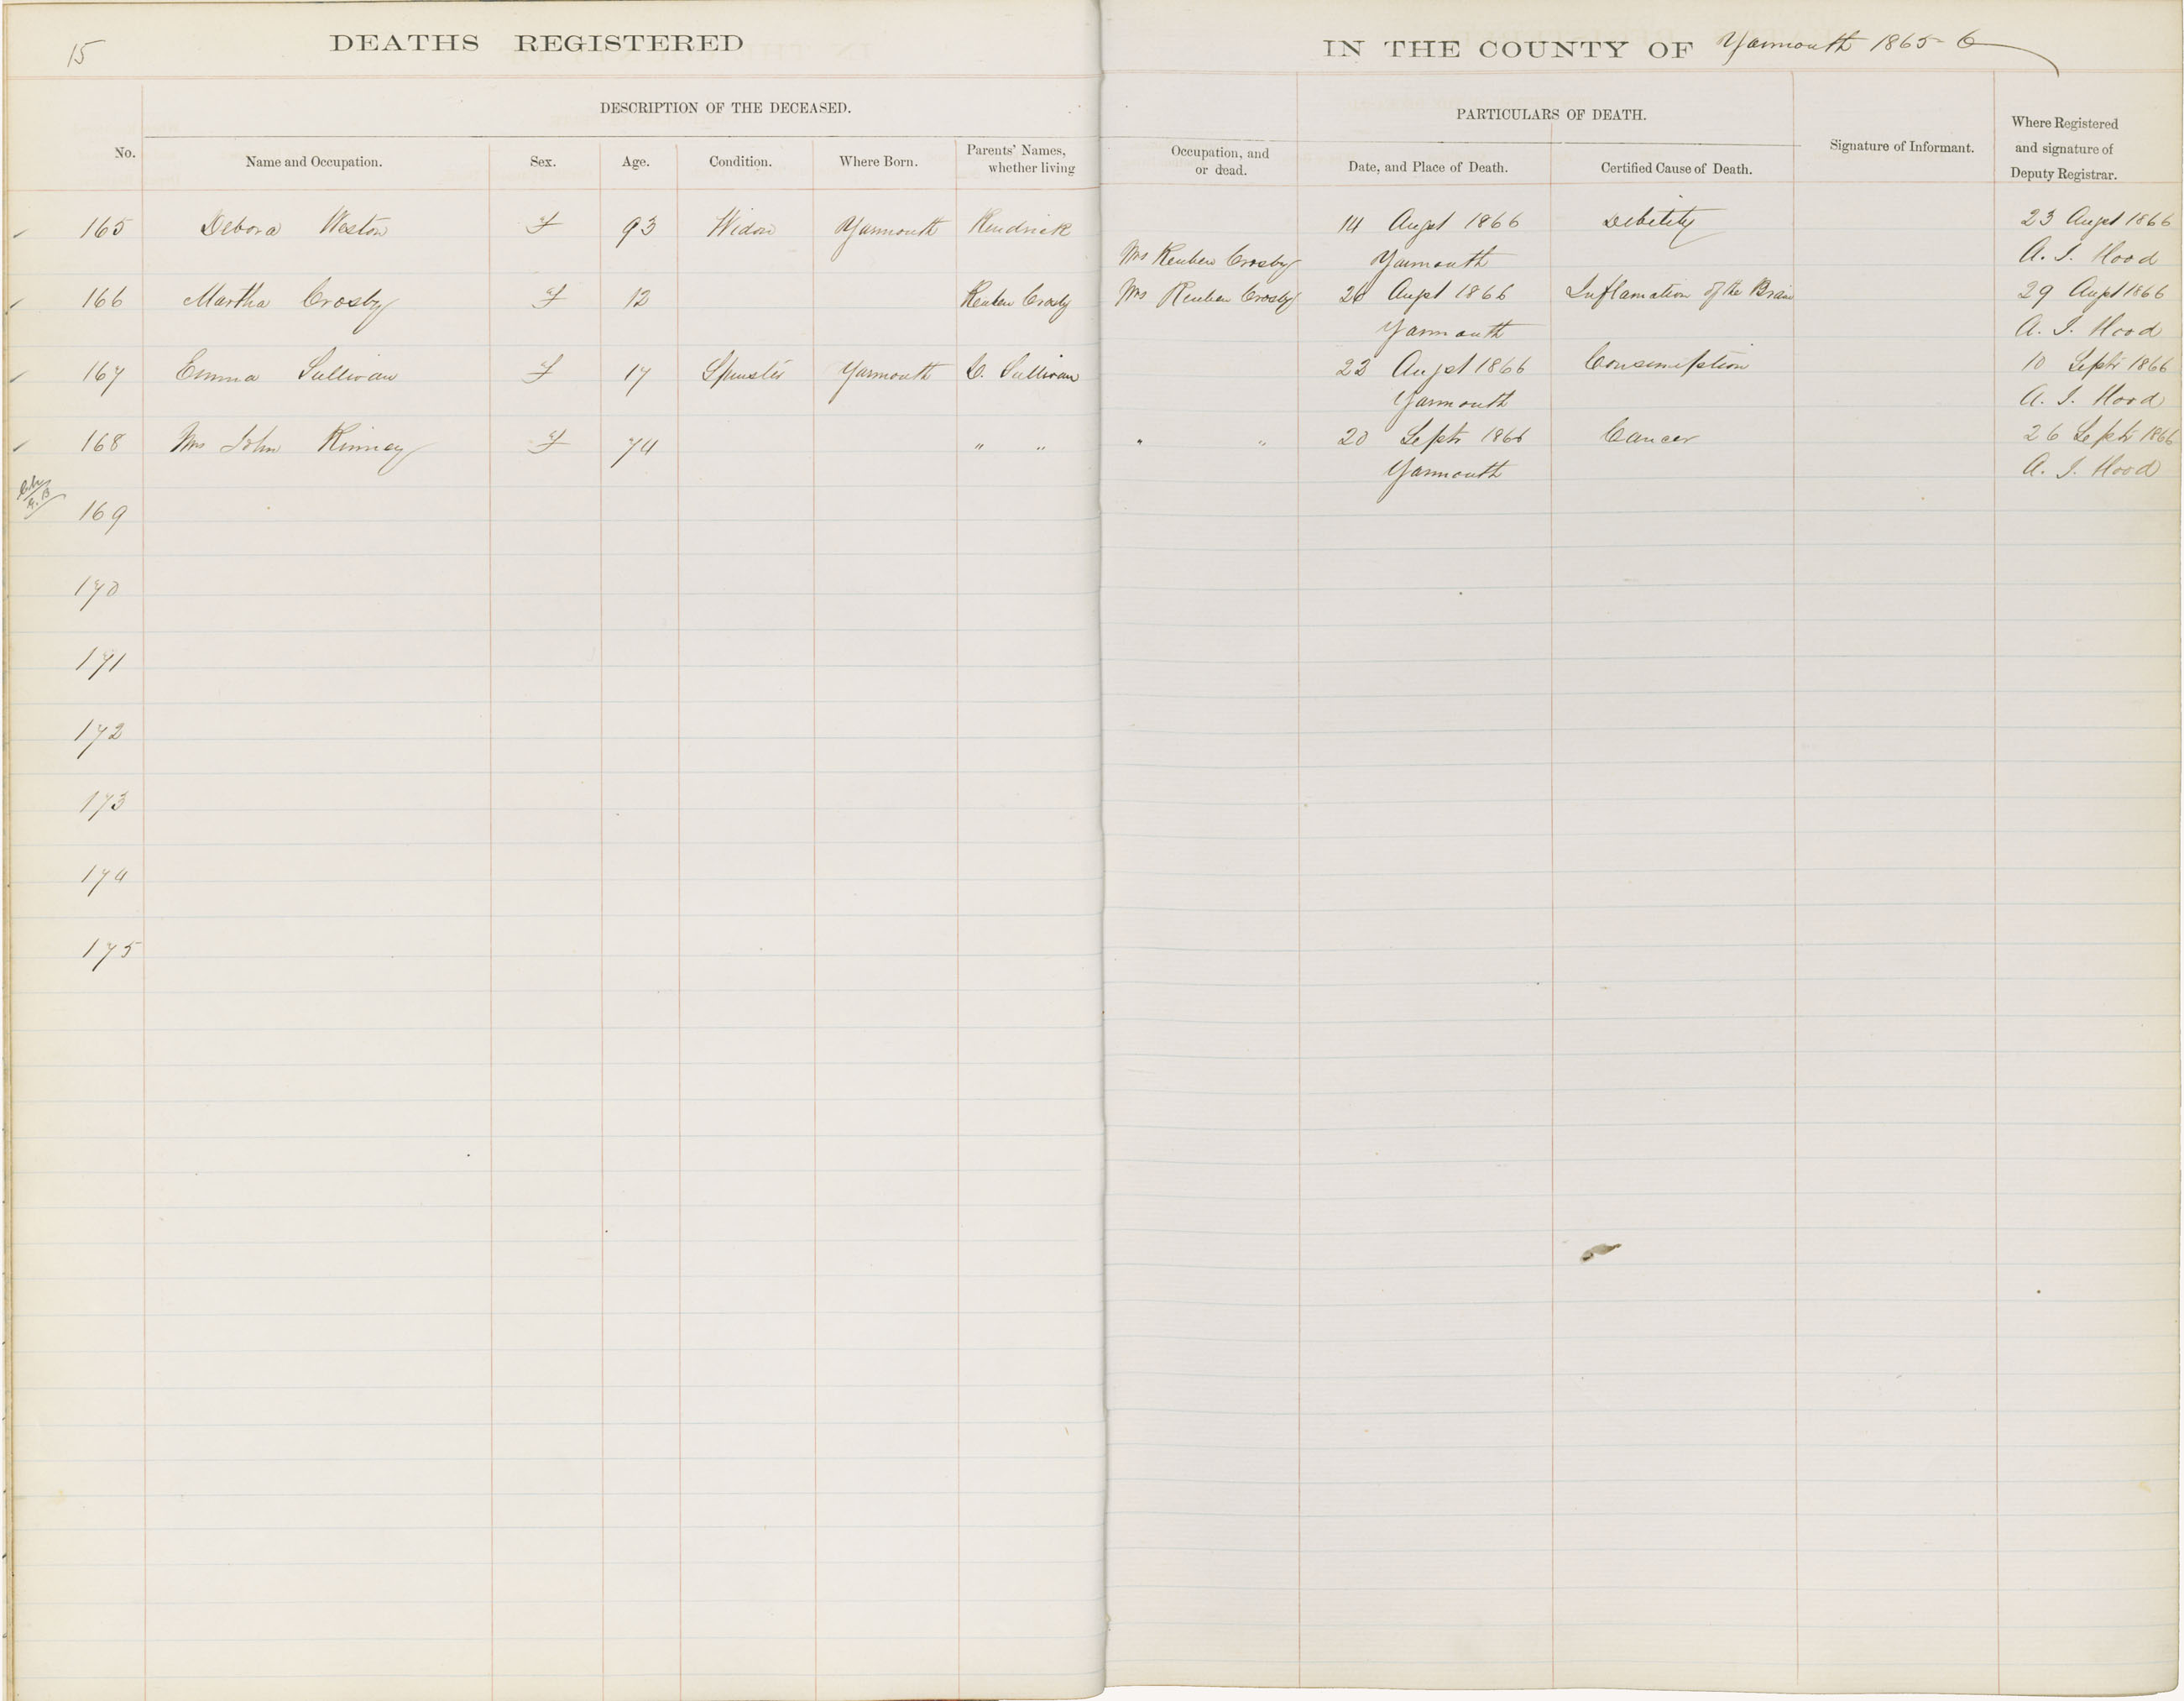 15
DEATHS REGISTERED IN THE COUNTY OF Yarmouth 1865-6
DESCRIPTION OF THE DECEASED. PARTICULARS OF DEATH.
No. Name and Occupation. Sex. Age. Condition. Where Born. Parents' Names, whether living Occupation, and or dead. Date, and Place of Death. Certified Cause of Death. Signature of Informant. Where Registered and signature of Deputy Registrar.
165 Debora Weston f 93 Widow Yarmouth Kendrick 14 Augst 1866 Debility 23 Augst 1866
Mrs Reuben Crosby Yarmouth A. J. Hood
166 Martha Crosby f 12 Reuben Crosby Mrs Reuben Crosby 26 Augst 1866 Inflamation of the Brain 29 Augst 1866
Yarmouth A. J. Hood
167 Emma Sullivan f 17 Spinster Yarmouth C. Sullivan 23 Augst 1866 Consumption 10 Septr 1866
Yarmouth A. J. Hood
168 Mrs John Kinney f 74 " " " " 20 Septr 1866 Cancer 26 Septr 1866
Yarmouth A. J. Hood
169
170
171
172
173
174
175